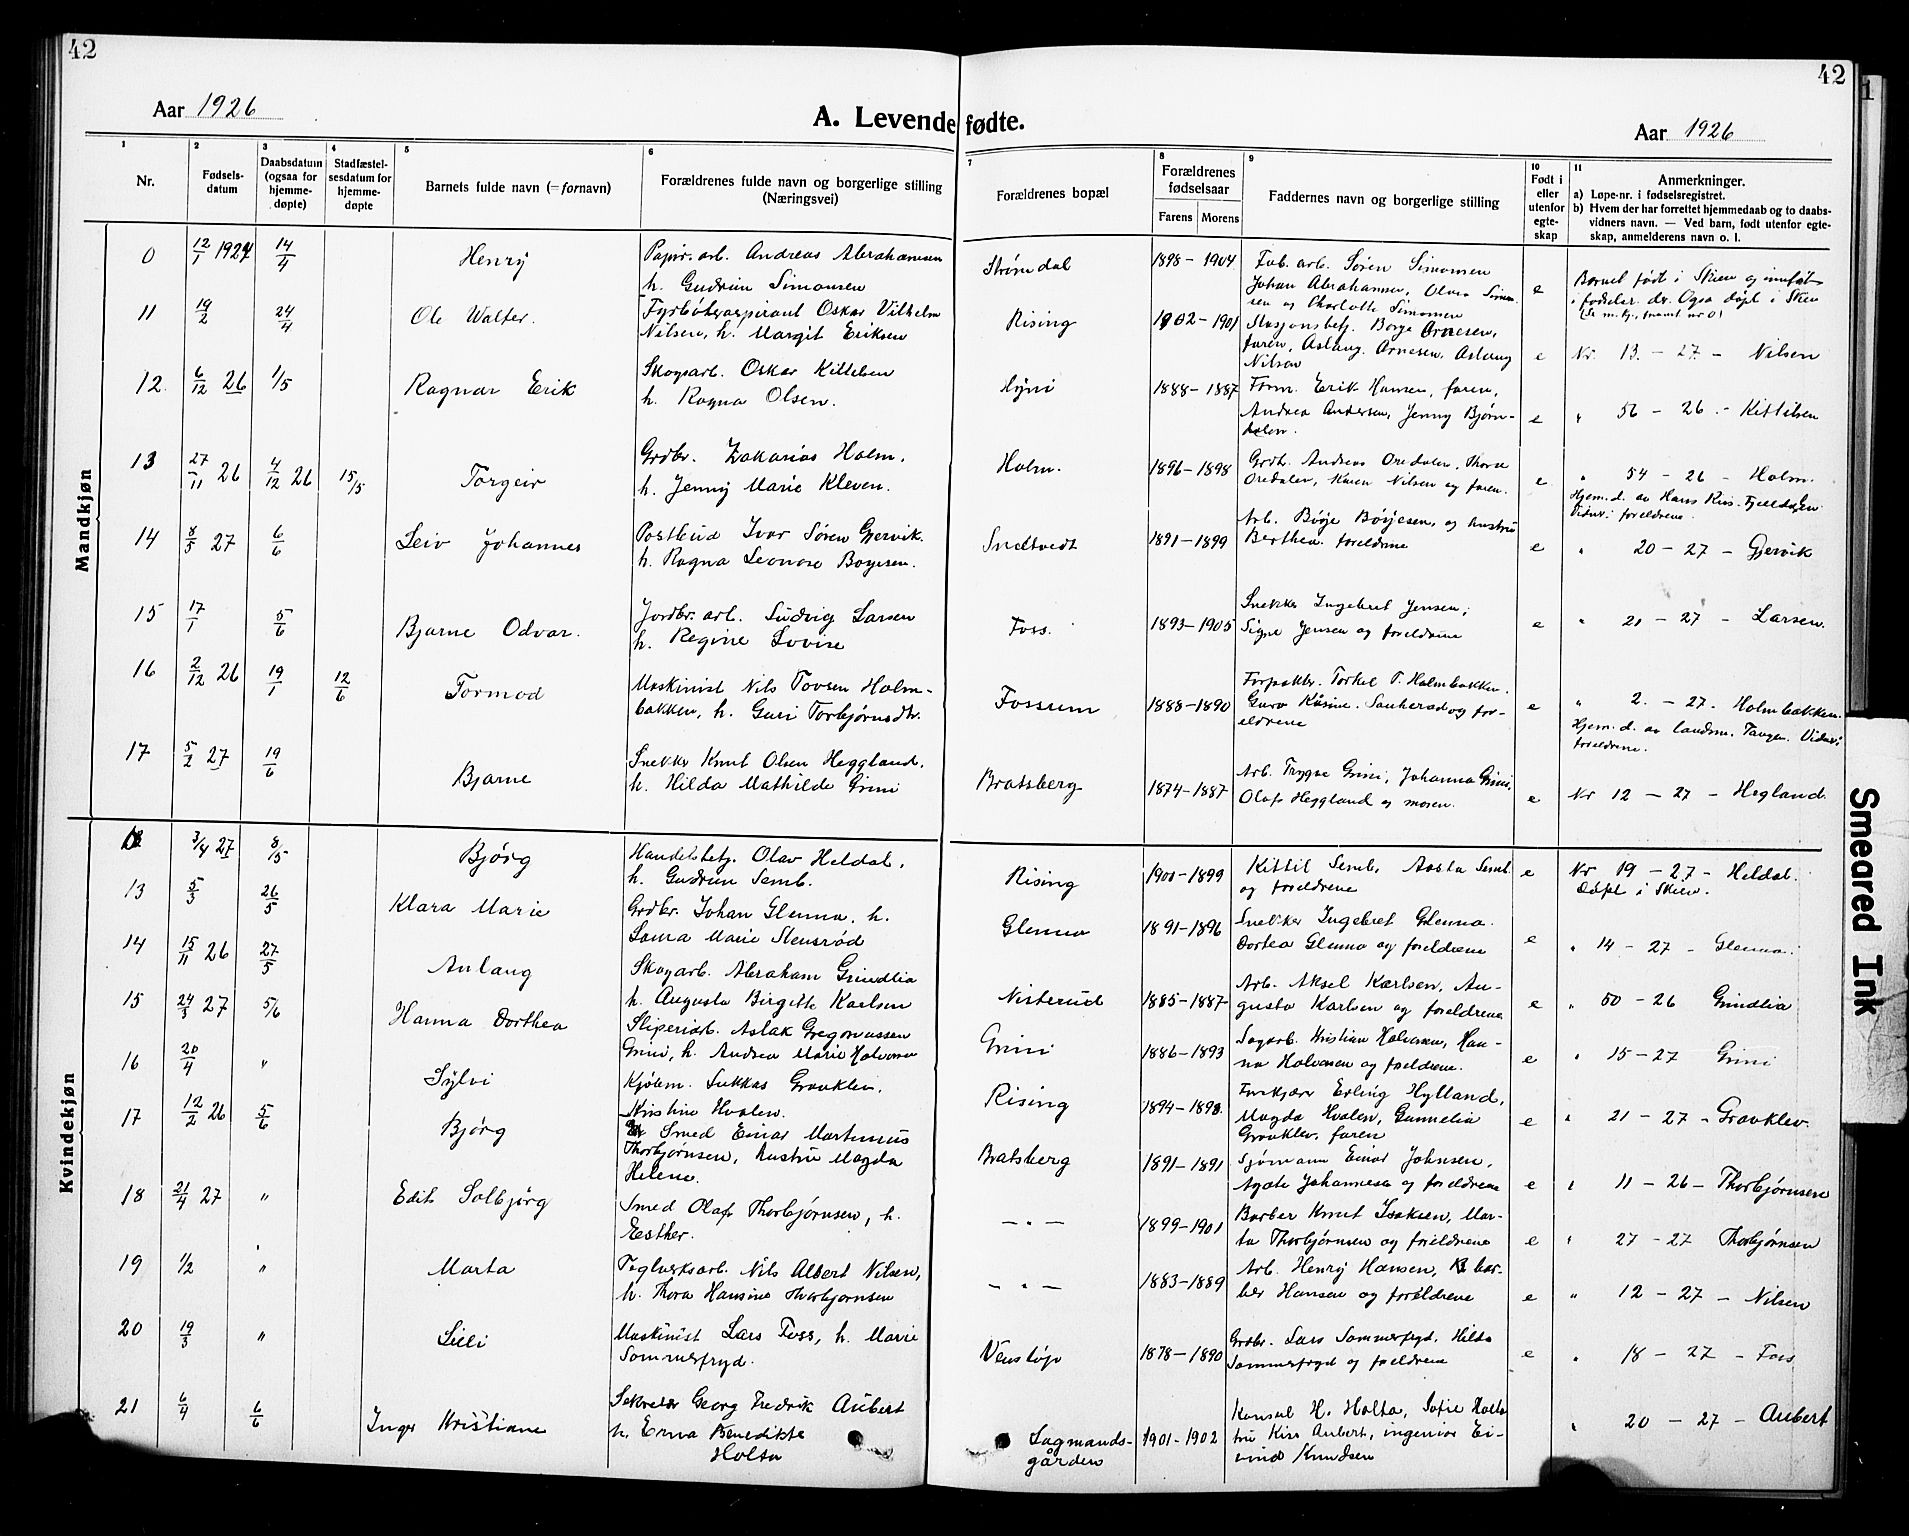 42
42
1
Aar 1926
A. Levende fødte.
Aar 1926
1
Nr.
2
Fødsels-
datum
3
Daabsdatum
(ogsaa for
hjemme-
døpte)
4
Stadfæstel-
sesdatum for
hjemme-
døpte
5
Barnets fulde navn (= fornavn)
6
Forældrenes fulde navn og borgerlige stilling
(Næringsvei)
7
Forældrenes bopæl
8
Forældrenes
fødselsaar
Farens
Morens
9
Faddernes navn og borgerlige stilling
10
Født i
eller
utenfor
egte-
skap
11
Anmerkninger.
a) Løpe-nr. i fødselsregistret.
b) Hvem der har forrettet hjemmedaab og to daabs-
vidners navn. — Ved barn, født utenfor egte-
skap, anmelderens navn o. l.
Mandkjøn
0 12/1 1927 14/4 Henry
Papir. arb. Andreas Abrahamsen
h. Gudrun Simonsen
Strømdal 1898 - 1904
Fab. arb. Søren Simonsen
Johan Abrahamsen, Olava Simon-
sen og Charlotte Simonsen
e
Barnet født i Skien og innført
i fødselsr. der. Også døpt i Skien
11 19/2 24/4 Ole Walter.
Fyrbøteraspirant Oskar Vilhelm
Nilsen, h. Margit Eriksen
Rising 1902 - 1901
Stasjonsbetj. Borge Arnesen,
faren, Aslaug Arnesen, Aslaug
Nilsen
e Nr. 13. - 27 - Nilsen
12. 6/12 26 1/5 Ragnar Erik
Skogsarb. Oskar Kittilsen
h. Ragna Olsen.
Hyni 1888 - 1887
Form. Erik Hansen, faren,
Andrea Andersen, Jenny Bjørn-
dalen.
e " 56 - 26 - Kittilsen
13 27/11 26 4/12 26 15/5 Torgeir
Grdbr. Zakarias Holm.
h. Jenny Marie Kleven.
Holm. 1896 - 1898
Grdb. Andreas Oredalen, Thora
Oredalen, Karen Nilsen og faren.
e " 54 - 26 - Holm.
Hjem. d. av Hans Kris. Fjelldalen
Vidner: foreldrene.
14 8/5 27 6/6 Leiv Johannes
Postbud Ivar Søren Gjervik.
h. Ragna Leonore Boyesen.
Sneltvedt 1891 - 1899
Arb. Børje Børjesen, og hustru
Berthea. foreldrene
e " 20 - 27 - Gjervik
15 17/1 5/6 Bjarne Odvar.
Jordbr. arb. Ludvig Larsen
h. Regine Lovise
Foss. 1893 - 1905
Snekker Ingebret Jensen,
Signe Jensen og foreldrene
e " 21 - 27 - Larsen.
16 2/12 26 19/1 12/6 Tormod
Maskinist Nils Tovsen Holm-
bakken, h. Guri Torbjørnsdtr.
Fossum 1888 - 1890
Forpakter. Torkel T. Holmbakken.
Guro Kåsine. Sauherad og for-
eldrene
e " 2. - 27. - Holmbakken.
Hjem. d. av landsm. Tangen. Vidner:
foreldrene.
17 5/2 27 19/6 Bjarne
Snekker Knut Olsen Heggland.
h. Hilda Mathilde Grini
Bratsberg 1874 - 1887
Arb. Trygve Grini, Johanna Grini,
Olaf Heggland og moren.
e Nr 12 - 27 - Hegland.
Kvindekjøn
3/4 27 8/5 Bjørg
Handelsbetj. Olav Heldal.
h. Gudrun Semb.
Rising 1901 - 1899
Kittil Semb, Aasta Semb
og foreldrene
e Nr 19 - 27 - Heldal.
Døpt i Skien.
13 5/3 26/5 Klara Marie
Grdbr. Johan Glenna, h.
Laura Marie Stensrød
Glenna 1891 - 1896
Snekker Ingebret Glenna.
Dortea Glenna og foreldrene
e " 14 - 27 - Glenna.
14 15/11 26 27/5 Anlaug
Skogarb. Abraham Grindlia
h. Augusta Birgitte Karlsen
Nisterud 1885 - 1887
Arb. Aksel Karlsen, Au-
gusta Karlsen og foreldrene
e " 50 - 26 Grindlia
15 24/3 27 5/6 Hanna Dorthea
Sliperiarb. Aslak Gregoriussen
Grini, h. Andrea Marie Halvorsen
Grini 1886 - 1893
Sagarb. Kristian Halvorsen, Han-
na Halvorsen og foreldrene.
e " 15 - 27 Grini
16 20/4 " Sylvi
Kjølem. Lukkas Gravklev.
Kristine Hvalen.
Rising 1894 - 1898
Forskjærer Erling Hylland,
Magda Hvalen, Gunnelia
Gravklev, faren
e " 21 - 27 - Gravklev.
17 12/2 26 5/6 Bjørg
Smed Einar Martinius
Thorbjørnsen, hustru Magda
Helene.
Bratsberg 1891 - 1891
Sjømann Einar Johnsen,
Agate Johannesen og foreldrene
e " 11 - 26 - Thorbjørnsen
18 21/4 27 " Edith Solbjørg
Smed Olaf Thorbjørnsen, h.
Esther.
- " - 1899 - 1901
Barber Knut Isaksen, Mar-
ta Thorbjørnsen og foreldrene
e " 27 - 27 Thorbjørnsen
19 1/2 " Marta
Teglverksarb. Nils Albert Nilsen,
h. Thora Hansine Thorbjørnsen
- " - 1883 - 1889
Arb. Henry Hansen, bar-
ber Hansen og foreldrene
e " 12 - 27 - Nilsen
20 19/3 " Lilli
Maskinist Lars Foss, h. Marie
Sommerfryd.
Venstøp 1878 - 1890
Grdbr. Lars Sommerfryd, Hilda
Sommerfryd og foreldrene
e " 18 - 27 - Foss
21 6/4 6/6 Inger Kristiane
Sekretær Georg Fredrik Aubert
h. Erna Benedikte
Holta
Lagmands-
gården
1901 - 1902
Konsul H. Holta, Sofie Holta
fru Kiss Aubert, ingeniør Ei-
vind Knudsen
" 20 - 27 - Aubert
Smeared Ink